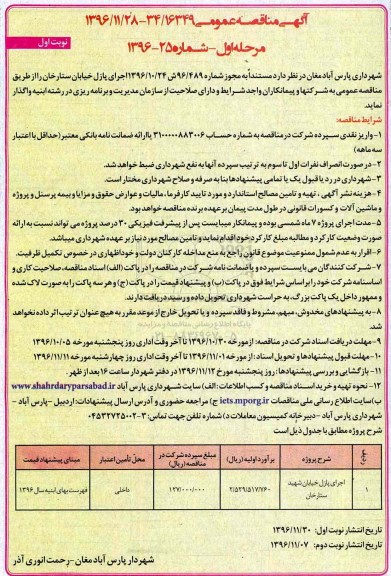 آگهی مناقصه عمومی ۳۴/۱۶۳۴۹-۱۳۹۶/۱۱/۲۸
نوبت اول
مرحله اول-شماره ۲۵-۱۳۹۶
شهرداری پارس آباد مغان در نظر دارد مستنداً به مجوز شماره ۹۶/۴۸۹/ش ۱۳۹۶/۱۰/۲۴ اجرای پازل خیابان ستارخان را از طریق
مناقصه عمومی به شرکتها و پیمانکاران واجد شرایط و دارای صلاحیت از سازمان مدیریت و برنامه ریزی در رشته ابنیه واگذار
نماید.
شرایط مناقصه:
۱-واریز نقدی سپرده شرکت در مناقصه به شماره حساب ۳۱۰۰۰۰۰۸۸۳۰۰۶ یا ارائه ضمانت نامه بانکی معتبر (حداقل با اعتبار
سه ماهه)
۲-در صورت انصراف نفرات اول تا سوم به ترتیب سپرده آنها به نفع شهرداری ضبط خواهد شد.
۳-شهرداری در رد یا قبول یک یا تمامی پیشنهادها بنا به صرفه و صلاح شهرداری مختار است.
۴-هزینه نشر آگهی، تهیه و تامین مصالح استاندارد و مورد تایید کارفرما، مالیات و عوارض حقوق و مزایا و بیمه پرسنل و پروژه
و ماشین آلات و کسورات قانونی در طول مدت پیمان بر عهده برنده مناقصه خواهد بود.
۵-مدت اجرای پروژه ۷ ماه شمسی بوده و پیمانکار میبایست پس از پیشرفت فیزیکی ۳۰ درصد پروژه می تواند نسبت به ارائه
صورت وضعیت کارکرد و مطالبه مبلغ کارکرد خود اقدام نماید و تامین مصالح مورد نیاز بر عهده شهرداری میباشد.
۶-اقرار به عدم شمول ممنوعیت موضوع قانون راجع به منع مداخله کارکنان دولت و خوداظهاری در خصوص تکمیل ظرفیت.
۷-شرکت کنندگان می بایست سپرده و یا ضمانت نامه شرکت در مناقصه را در پاکت (الف) اسناد مناقصه، صلاحیت کاری و
اساسنامه شرکت خود را بر اساس شرایط فوق در پاکت (ب) و پیشنهاد قیمت را در پاکت (ج) و هر سه پاکت را به صورت لاک شده
و ممهور داخل یک پاکت بزرگ، به حراست شهرداری تحویل داده و رسید دریافت دارند.
۸-به پیشنهادهای مخدوش، مبهم، مشروط و فاقد سپرده و یا تحویل خارج از موعد مقرر به هیچ عنوان ترتیب اثر داده نخواهد
شد.
۹-مهلت دریافت اسناد شرکت در مناقصه: از مورخه ۱۳۹۶/۱۰/۳۰ تا آخر وقت اداری روز پنجشنبه مورخه ۱۳۹۶/۱۰/۰۵
۱۰-مهلت قبول پیشنهادها و تحویل اسناد: از مورخه ۱۳۹۶/۱۱/۰۱ تا آخر وقت اداری روز چهارشنبه مورخه ۱۳۹۶/۱۱/۱۱
۱۱-بازگشایی و بررسی پیشنهادها: روز پنجشنبه مورخ ۱۳۹۶/۱۱/۱۲ در دفتر شهردار ساعت ۱۶ بعد از ظهر.
۱۲-نحوه تهیه و خرید اسناد مناقصه و کسب اطلاعات: الف) سایت شهرداری پارس آباد www.shahrdaryparsabad.ir
ب) سایت اطلاع رسانی ملی مناقصات iets.mporg.ir ج) مراجعه حضوری و آدرس ارسال پیشنهادات: اردبیل-پارس آباد-
شهرداری پارس آباد-دبیرخانه کمیسیون معاملات د) شماره تلفن جهت تماس: ۳-۰۴۵۳۲۷۲۵۰۰۲
شرح پروژه مطابق با جدول ذیل است
ردیف | شرح پروژه | برآورد اولیه (ریال) | مبلغ سپرده شرکت در مناقصه (ریال) | محل تأمین اعتبار | مبنای پیشنهاد قیمت
۱ | اجرای پازل خیابان شهید ستارخان | ۲/۵۲۹/۵۱۷/۷۶۰ | ۱۲۷/۰۰۰/۰۰۰ | داخلی | فهرست بهای ابنیه سال ۱۳۹۶
تاریخ انتشار نوبت اول: ۱۳۹۶/۱۱/۳۰
تاریخ انتشار نوبت دوم: ۱۳۹۶/۱۱/۰۷
شهردار پارس آباد مغان-رحمت انوری آذر